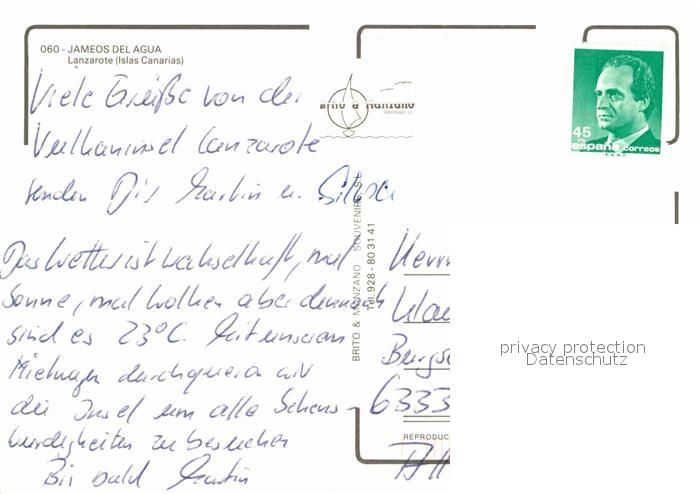 060 - JAMEOS DEL AGUA
Lanzarote (Islas Canarias)
Viele Grüße von der
Vulkaninsel Lanzarote
senden Dir Martin u.
Das Wetter ist wechselhaft, mal
Sonne, mal Wolken aber dennoch
sind es 23°C. Mit unserem
Mietwagen durchqueren wir
die Insel um alle Sehens-
würdigkeiten zu besuchen
Bis bald Martin
Brito & Manzano
SOUVENIRS S.L.
BRITO & MANZANO - SOUVENIRS, S.L.
Tel. 928 - 80 31 41
45
PTA
españa correos
F.N.M.T.
Herrn
6333
REPRODUC
privacy protection
Datenschutz